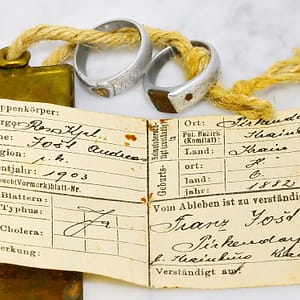 ppenkörper:
arge: Res. Kpl.
me: Jošt Andreas
gion: r. k.
entjahr: 1903
buch(Vormerk)blatt-Nr.
Blattern:
Typhus: Ja
Cholera:
erkung:
Heimats-
Geburts-
Ort: Pirkendorf
Pol. Bezirk
(Komitat):
Land: Krain
Ort:
land:
jahr: 1882
Vom Ableben ist zu verständig
Franz Jošt
Pirkendorf
Verständigt am: